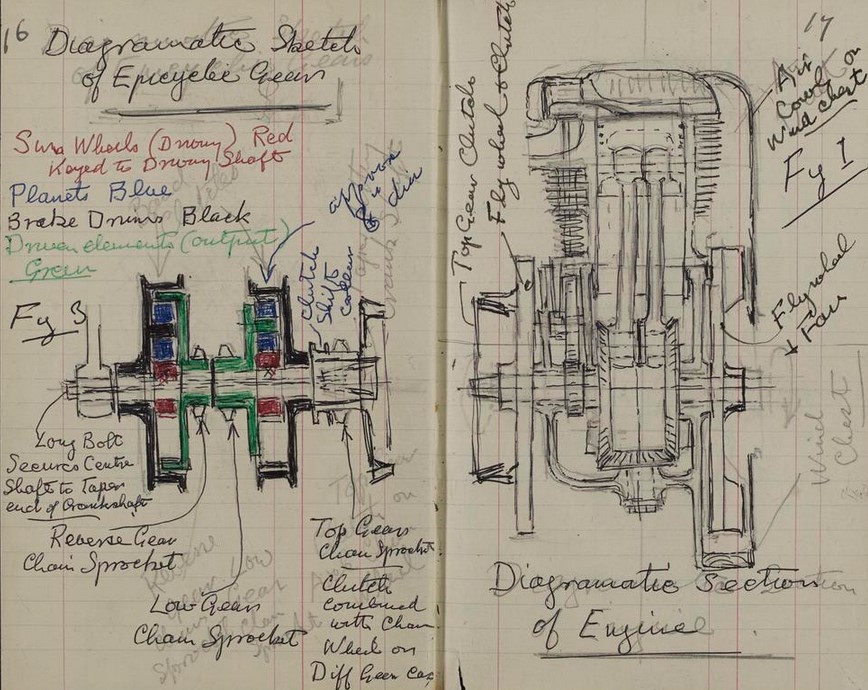 16
Diagramatic Sketch
of Epicyclic Gears
Suns Wheels (Driving) Red
Keyed to Driving Shaft
Planets Blue
Brake Drums Black
Driven elements (output)
Green
approx
dia
Clutch
Shift
collar
Fig 3
Long Bolt
Secures Centre
Shaft to Taper
end of Crankshaft
Reverse Gear
Chain Sprocket
Low Gears
Chain Sprocket
Top Gears
Chain Sprocket
Clutch
combined
with Chain
Wheel on
Diff Gear Cas
17
Top Gear Clutch
Fly wheel & Clutch
Air
Cowl or
Wind chest
Fig 1
Flywheel
Fan
Wind
Chest
Diagramatic Section
of Engine